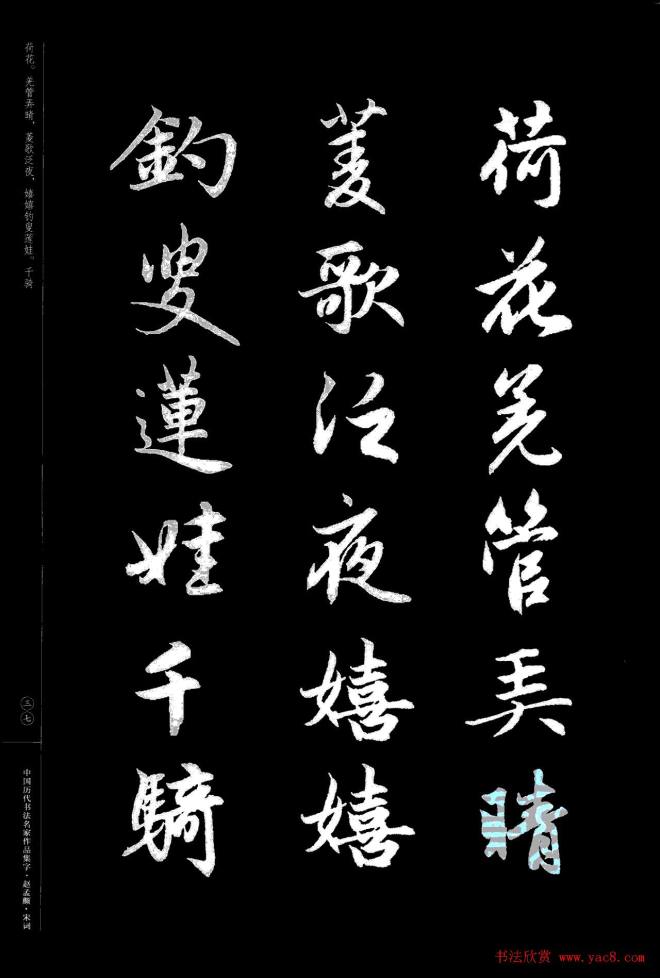 荷花羌管弄晴
菱歌泛夜嬉嬉
釣叟蓮娃千騎
荷花。羌管弄晴，菱歌泛夜，嬉嬉钓叟莲娃。千骑
三七
中国历代书法名家作品集字·赵孟頫·宋词
书法欣赏 www.yac8.com